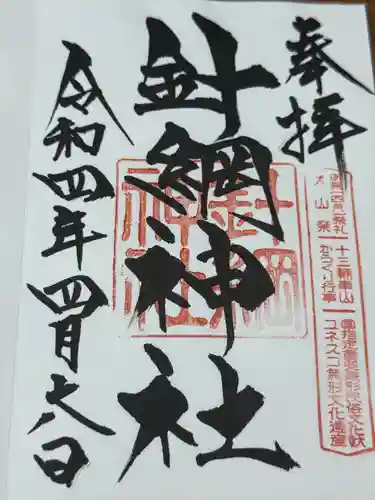 奉拝
犬山祭
十三輌車山
からくり行事
国指定重要無形民俗文化財
ユネスコ無形文化遺産
針綱神社
針綱神社
令和四年四月六日